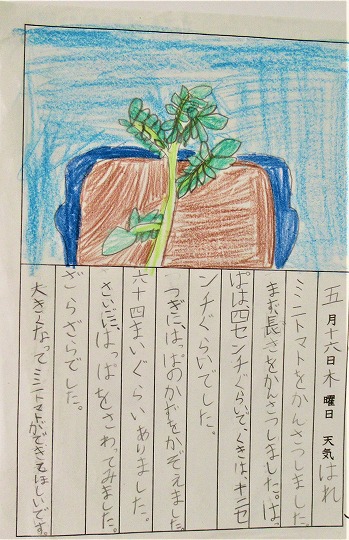 五月十六日木曜日 天気はれ
ミニトマトをかんさつしました。
まず、長さをかんさつしました。はっ
ぱは四センチぐらいで、くきは、十センチ
ンチぐらいでした。
つぎに、はっぱのかずをかぞえました。
六十四まいぐらいありました。
さいごに、はっぱをさわってみました。
ざらざらでした。
大きくなってミニトマトができてほしいです。